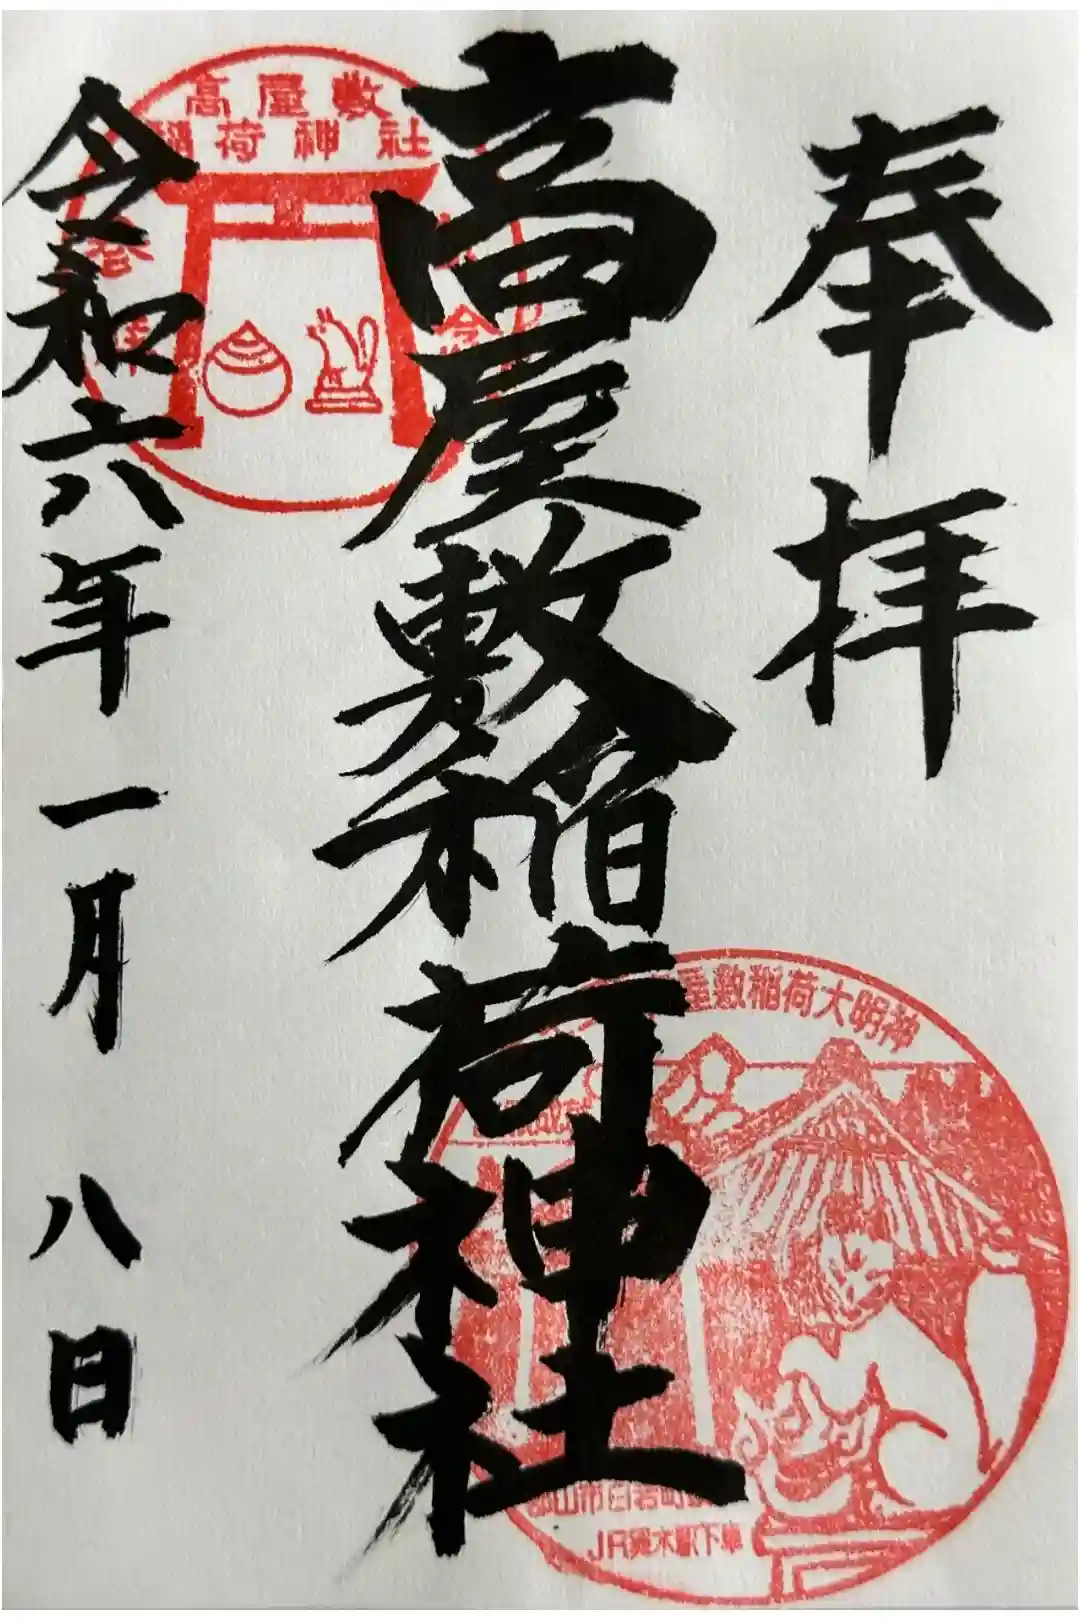 奉拝
高屋敷稲荷神社
令和六年一月八日
高屋敷
稲荷神社
屋敷稲荷大明神
郡山市白岩町
JR舞木駅下車